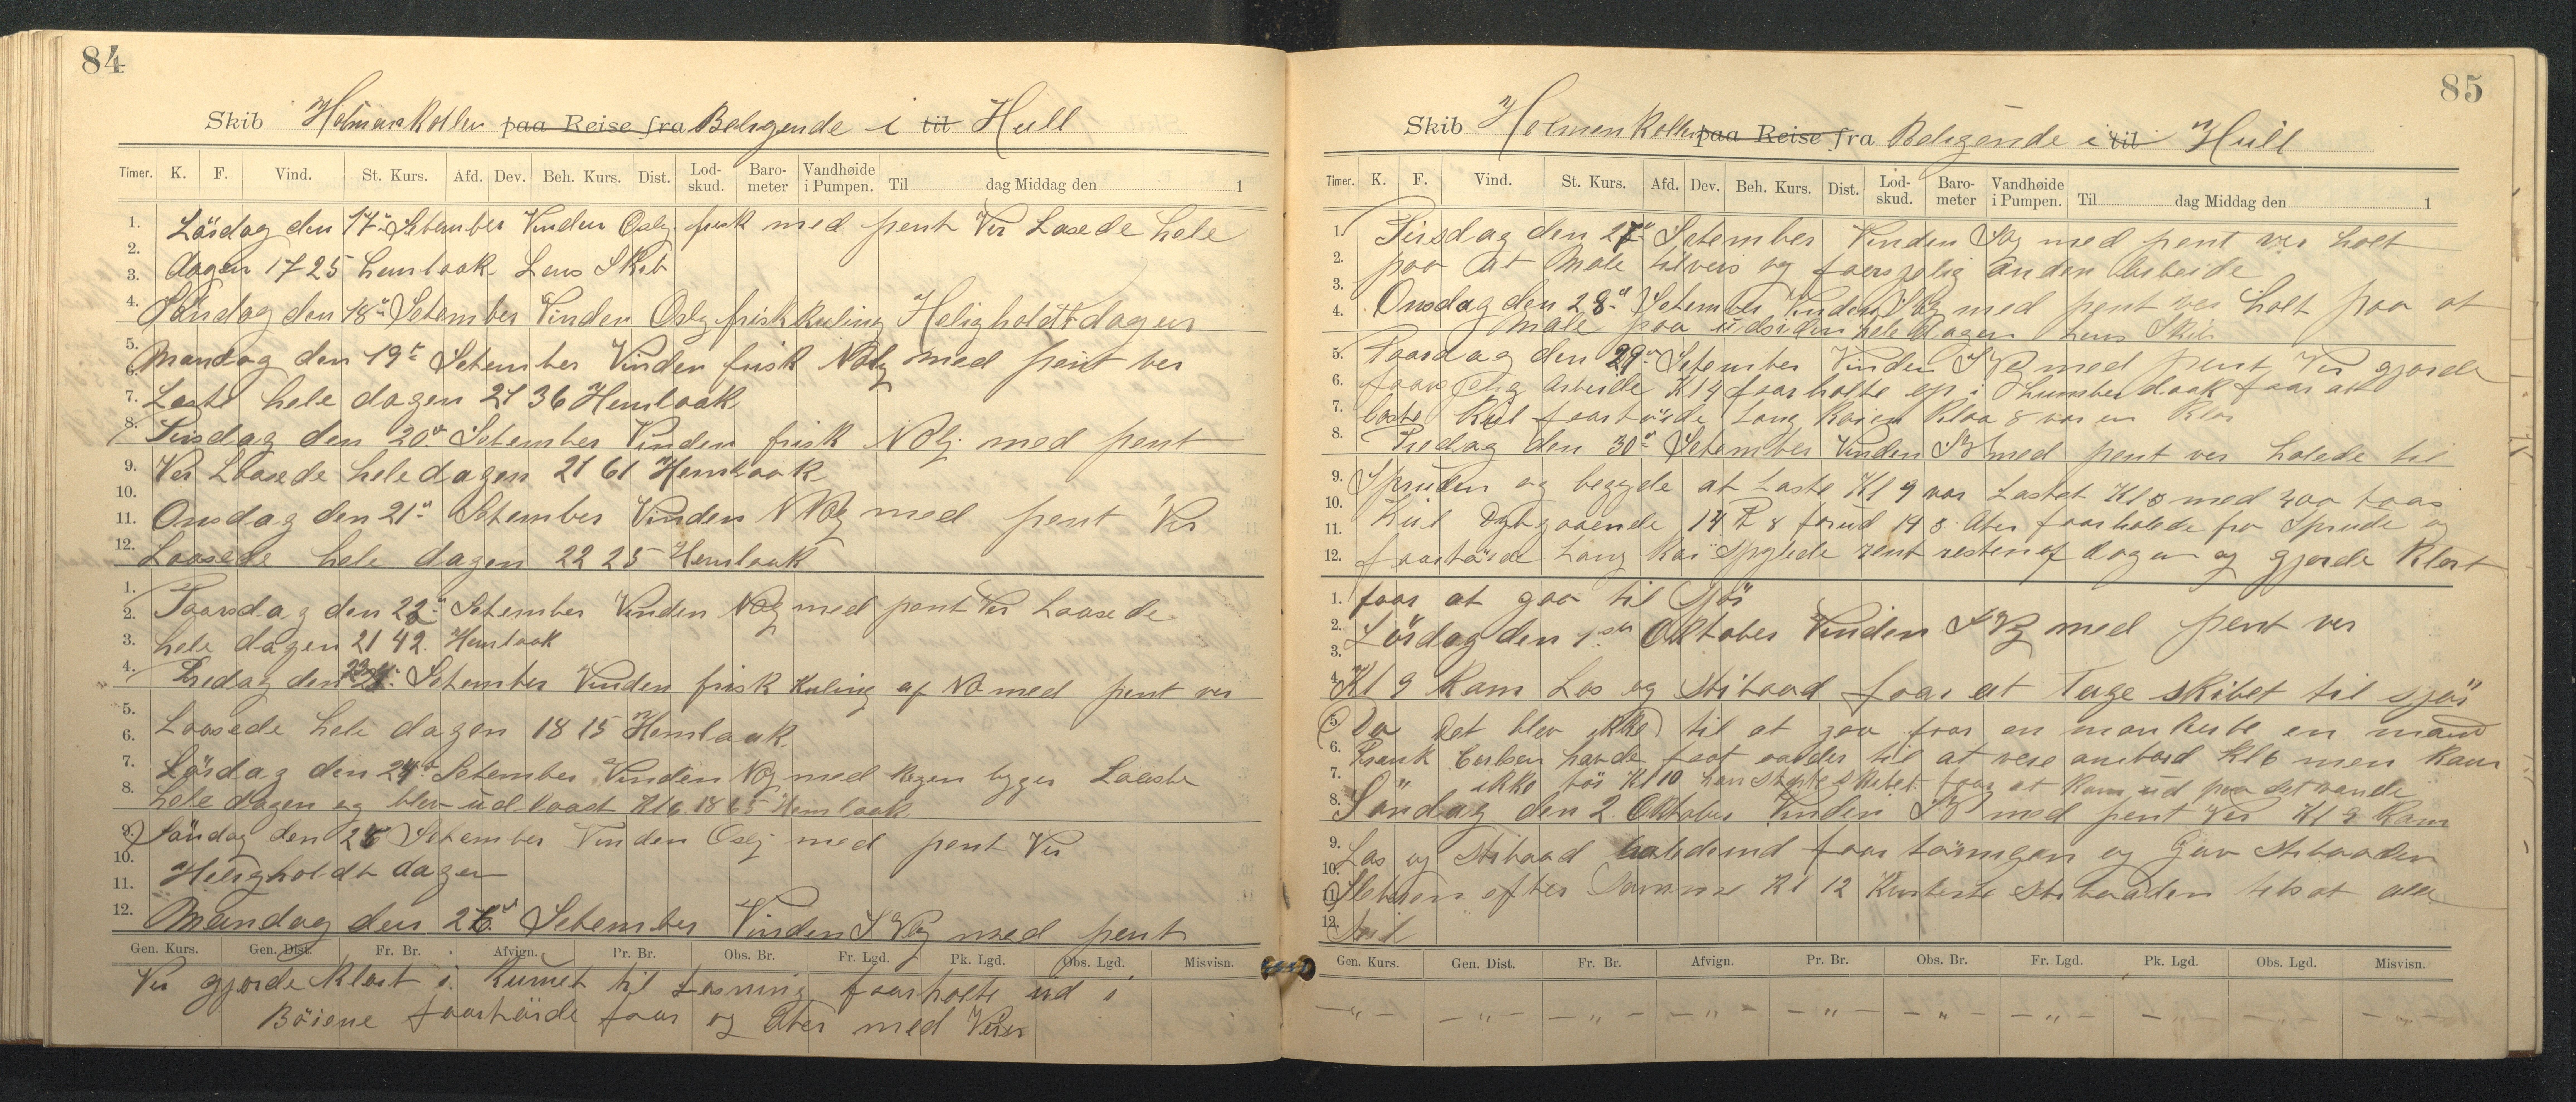 84
Skib Holmenkollen paa Reise fra Beligende i til Hull
Timer. K. F. Vind. St. Kurs. Afd. Dev. Beh. Kurs. Dist. Lodskud. Barometer Vandhøide i Pumpen. Til dag Middag den 1
1. Lördag den 17de Setember Vinden Oslg. frisk med pent Ver Losede hele
2. dagen 1725 Lens Skib
3.
4. Söndag den 18de Setember Vinden Oslg frisk kuling Heligholdt dagen
5. Mandag den 19de Setember Vinden frisk NOlg med pent ver
6.
7. Loste hele dagen 21 36 Hemlaak
8. Tirsdag den 20de Setember Vinden frisk NOlg. med pent
9. Ver Loasede hele dagen 21 61 Hemlaak
10.
11. Onsdag den 21de Setember Vinden med pent Ver
12. Loasede hele dagen 22 25 Hemlaak
1. Taarsdag den 22de Setember Vinden med pent Ver Loasede
2.
3. hele dagen 21 42. Hemlaak
4. Fredag den 23 Setember Vinden frisk Kuling af NO med pent ver
5. Loasede hele dagen 18 15 Hemlaak
6.
7. Lördag den 24de Setember Vinden med Regen bygger Loaste
8. hele dagen og blev udloaset Kl 6. 18 65 Hemlaak
9. Söndag den 25 Setember Vinden Oslj med pent Ver
10.
11. Heligholdt dagen
12. Mandag den 26de Setember Vinden med pent
Gen. Kurs. Gen. Dist. Fr. Br. Afvign. Pr. Br. Obs. Br. Fr. Lgd. Pk. Lgd. Obs. Lgd. Misvisn.
Ver gjorde klart i Rumet til Lasning faarholte ud i
Böiene faartöide faar og Ater med Virer
85
Skib Holmenkollen paa Reise fra Beligende i til Hull
Timer. K. F. Vind. St. Kurs. Afd. Dev. Beh. Kurs. Dist. Lodskud. Barometer Vandhøide i Pumpen. Til dag Middag den 1
1. Tirsdag den 27de Setember Vinden med pent ver holt
2. paa at Male tilveis og faarsjelig anden Arbeide
3.
4. Onsdag den 28de Setember Vinden med pent ver holt paa at
male paa udsiden hele dagen Lens Skib
5. Taarsdag den 29de Setember Vinden med pent Ver gjorde
6. faarsjelig Arbeide Kl 4 faarholte op i daak faar at
7. loste Kul faartöide Lang Kaien Kloa 8 var en klar
8. Fredag den 30de Setember Vinden med pent ver holede til
9. Spruden og begyde at Laste Kl 9 var Lastet Kl med 400 toas
10.
11. Kul Dybgaaende 14 F 8 forud 14 8 Ater faarholede fra Sprude og
12. faartöide Lang Kai Spylede rent resten af dagen og gjorde klart
1. faar at gaa til Sjös
2. Lördag den 1ste Oktober Vinden med pent ver
3.
4. Kl 9 Kam Los og Stibaad faar at Tage skibet til sjös
5. Da Det blev ikke til at gaa faar en mankerte en mand
6. Frank Carlsen havde faat order til at vere ombord Kl 6 men kam
7. ikke för Kl 10 han skibet faar at kam ud paa det vande
8. Söndag den 2. Oktober Vinden med pent Ver Kl 9 Kam
9. Los og Stibaad faar og Gav Stibaaden
10.
11. Sleberen efter Samme Kl 12 Stibaaden tilsat alle
12. Seil
Gen. Kurs. Gen. Dist. Fr. Br. Afvign. Pr. Br. Obs. Br. Fr. Lgd. Pk. Lgd. Obs. Lgd. Misvisn.